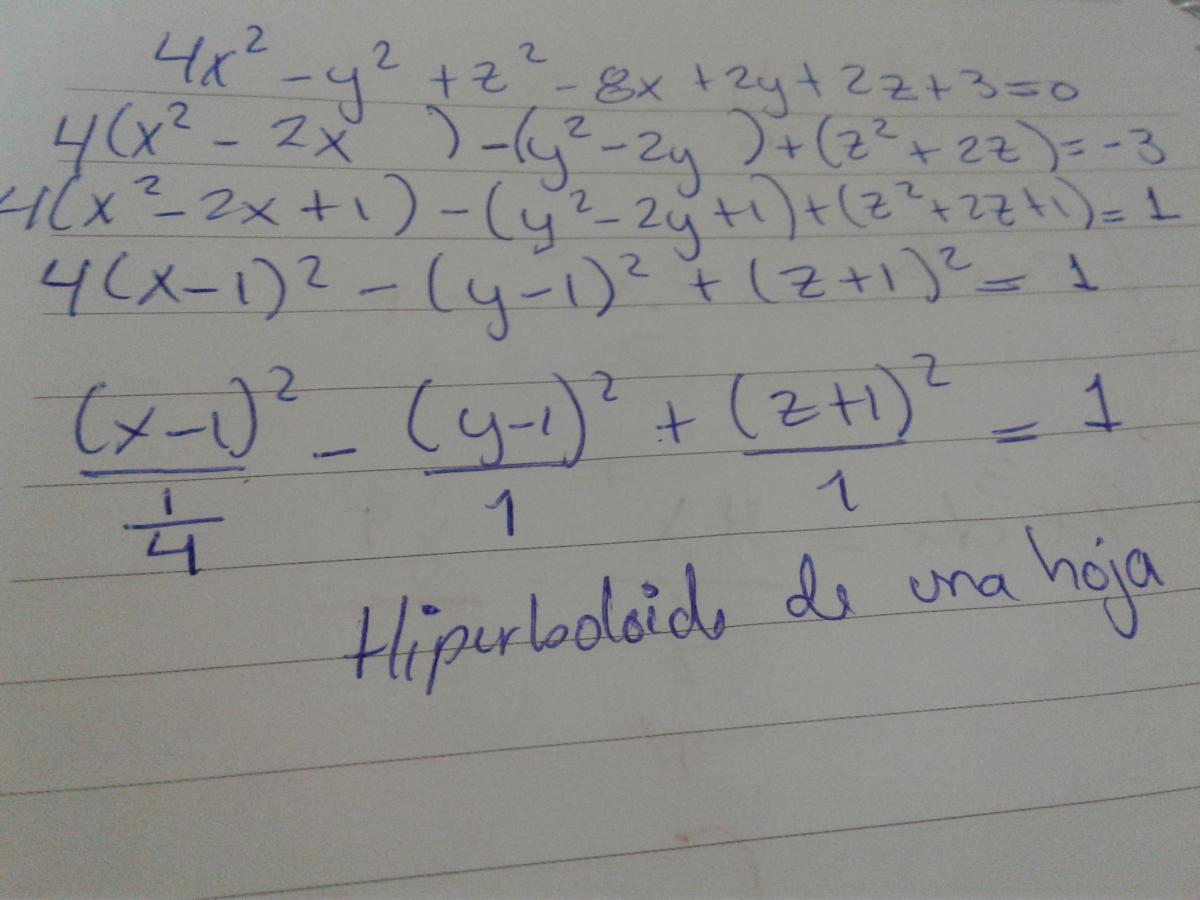 4x² - y² + z² - 8x + 2y + 2z + 3 = 0
4(x² - 2x ) - (y² - 2y ) + (z² + 2z) = -3
4(x² - 2x + 1) - (y² - 2y + 1) + (z² + 2z + 1) = 1
4(x - 1)² - (y - 1)² + (z + 1)² = 1
(x-1)² / (1/4) - (y-1)² / 1 + (z+1)² / 1 = 1
Hiperboloide de una hoja